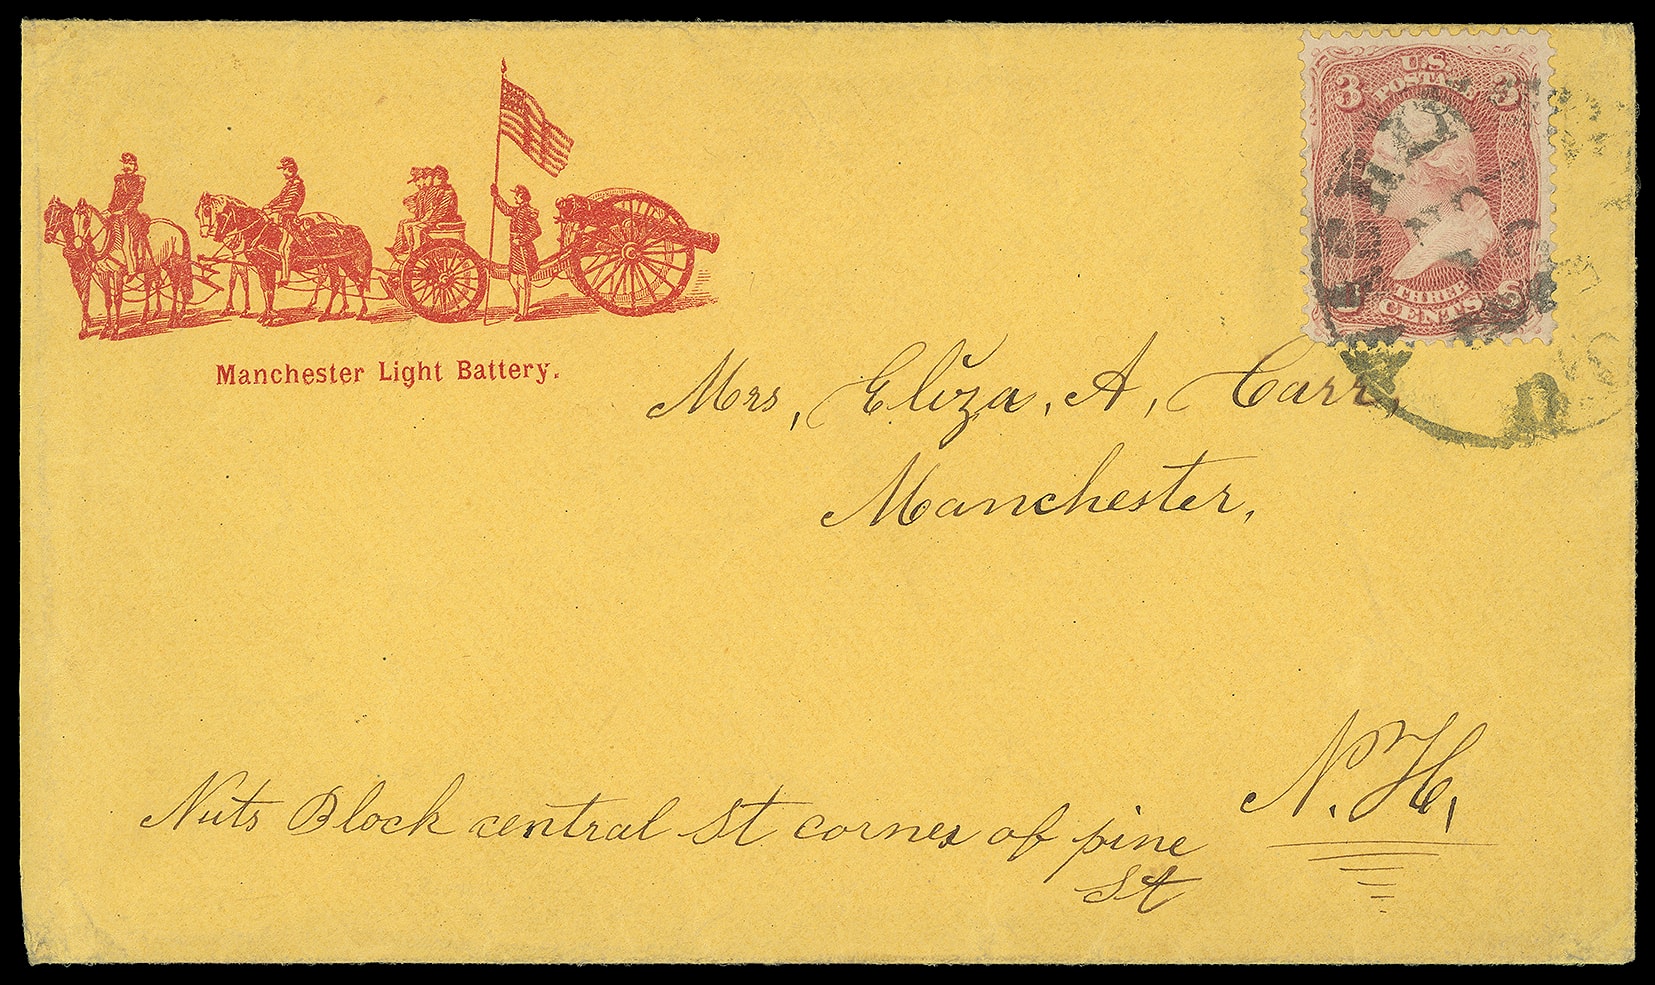 U.S.
POSTAGE
3 3
THREE
CENTS
Manchester Light Battery.
Mrs, Eliza, A, Carr,
Manchester,
N. H,
Nuts Block central St corner of pine
St